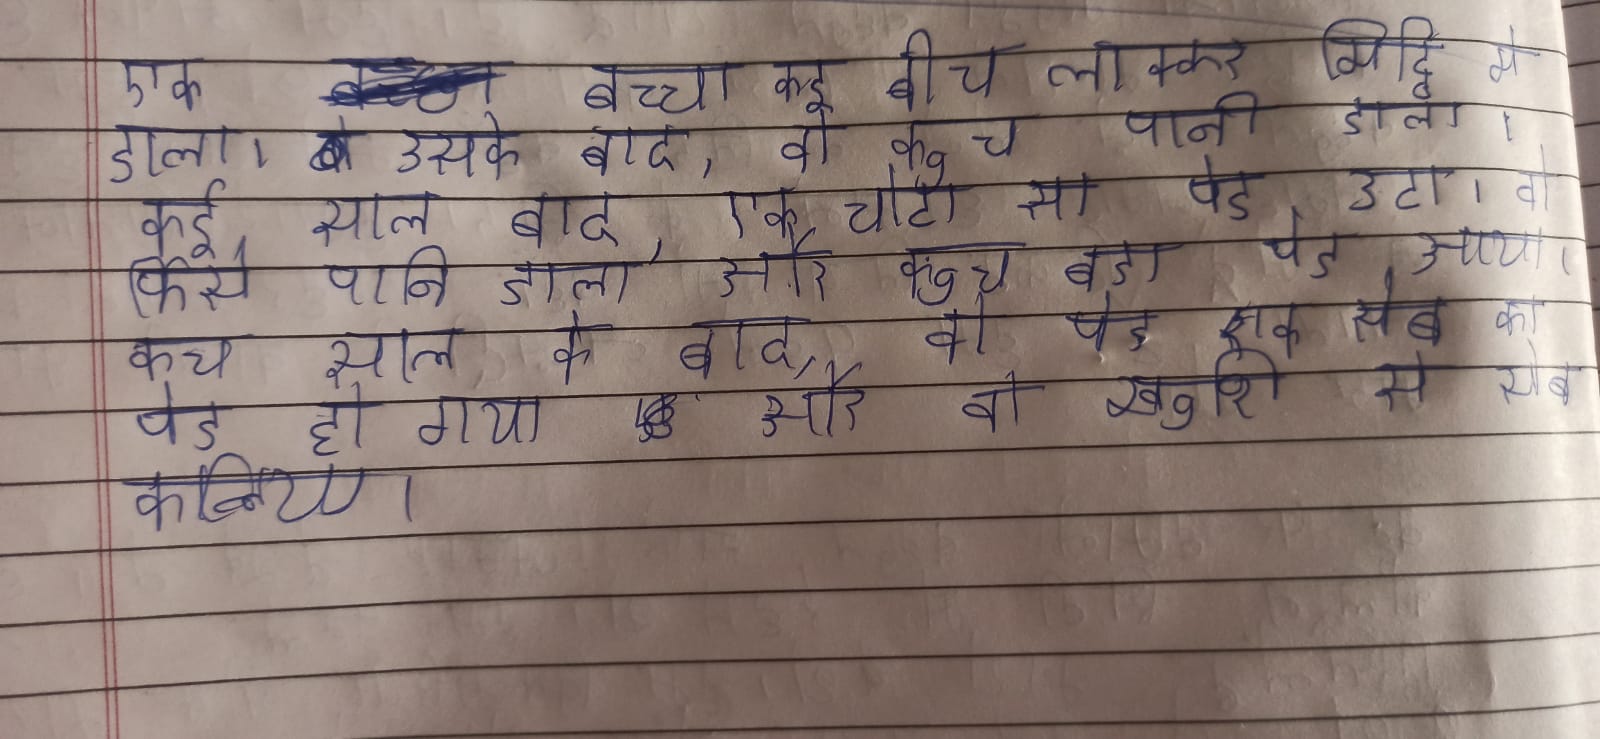 एक बच्चा कइ बीच लाक्कर मिट्टि मे
डाला। उसके बाद, वो कुच पानी डाला।
कई साल बाद, एक चोटा सा पेड उटा। वो
फिरसे पानि डाला और कुच बडा पेड आया।
कुच साल के बाद, वो पेड एक सेब का
पेड हो गया और वो खुशि से सेब